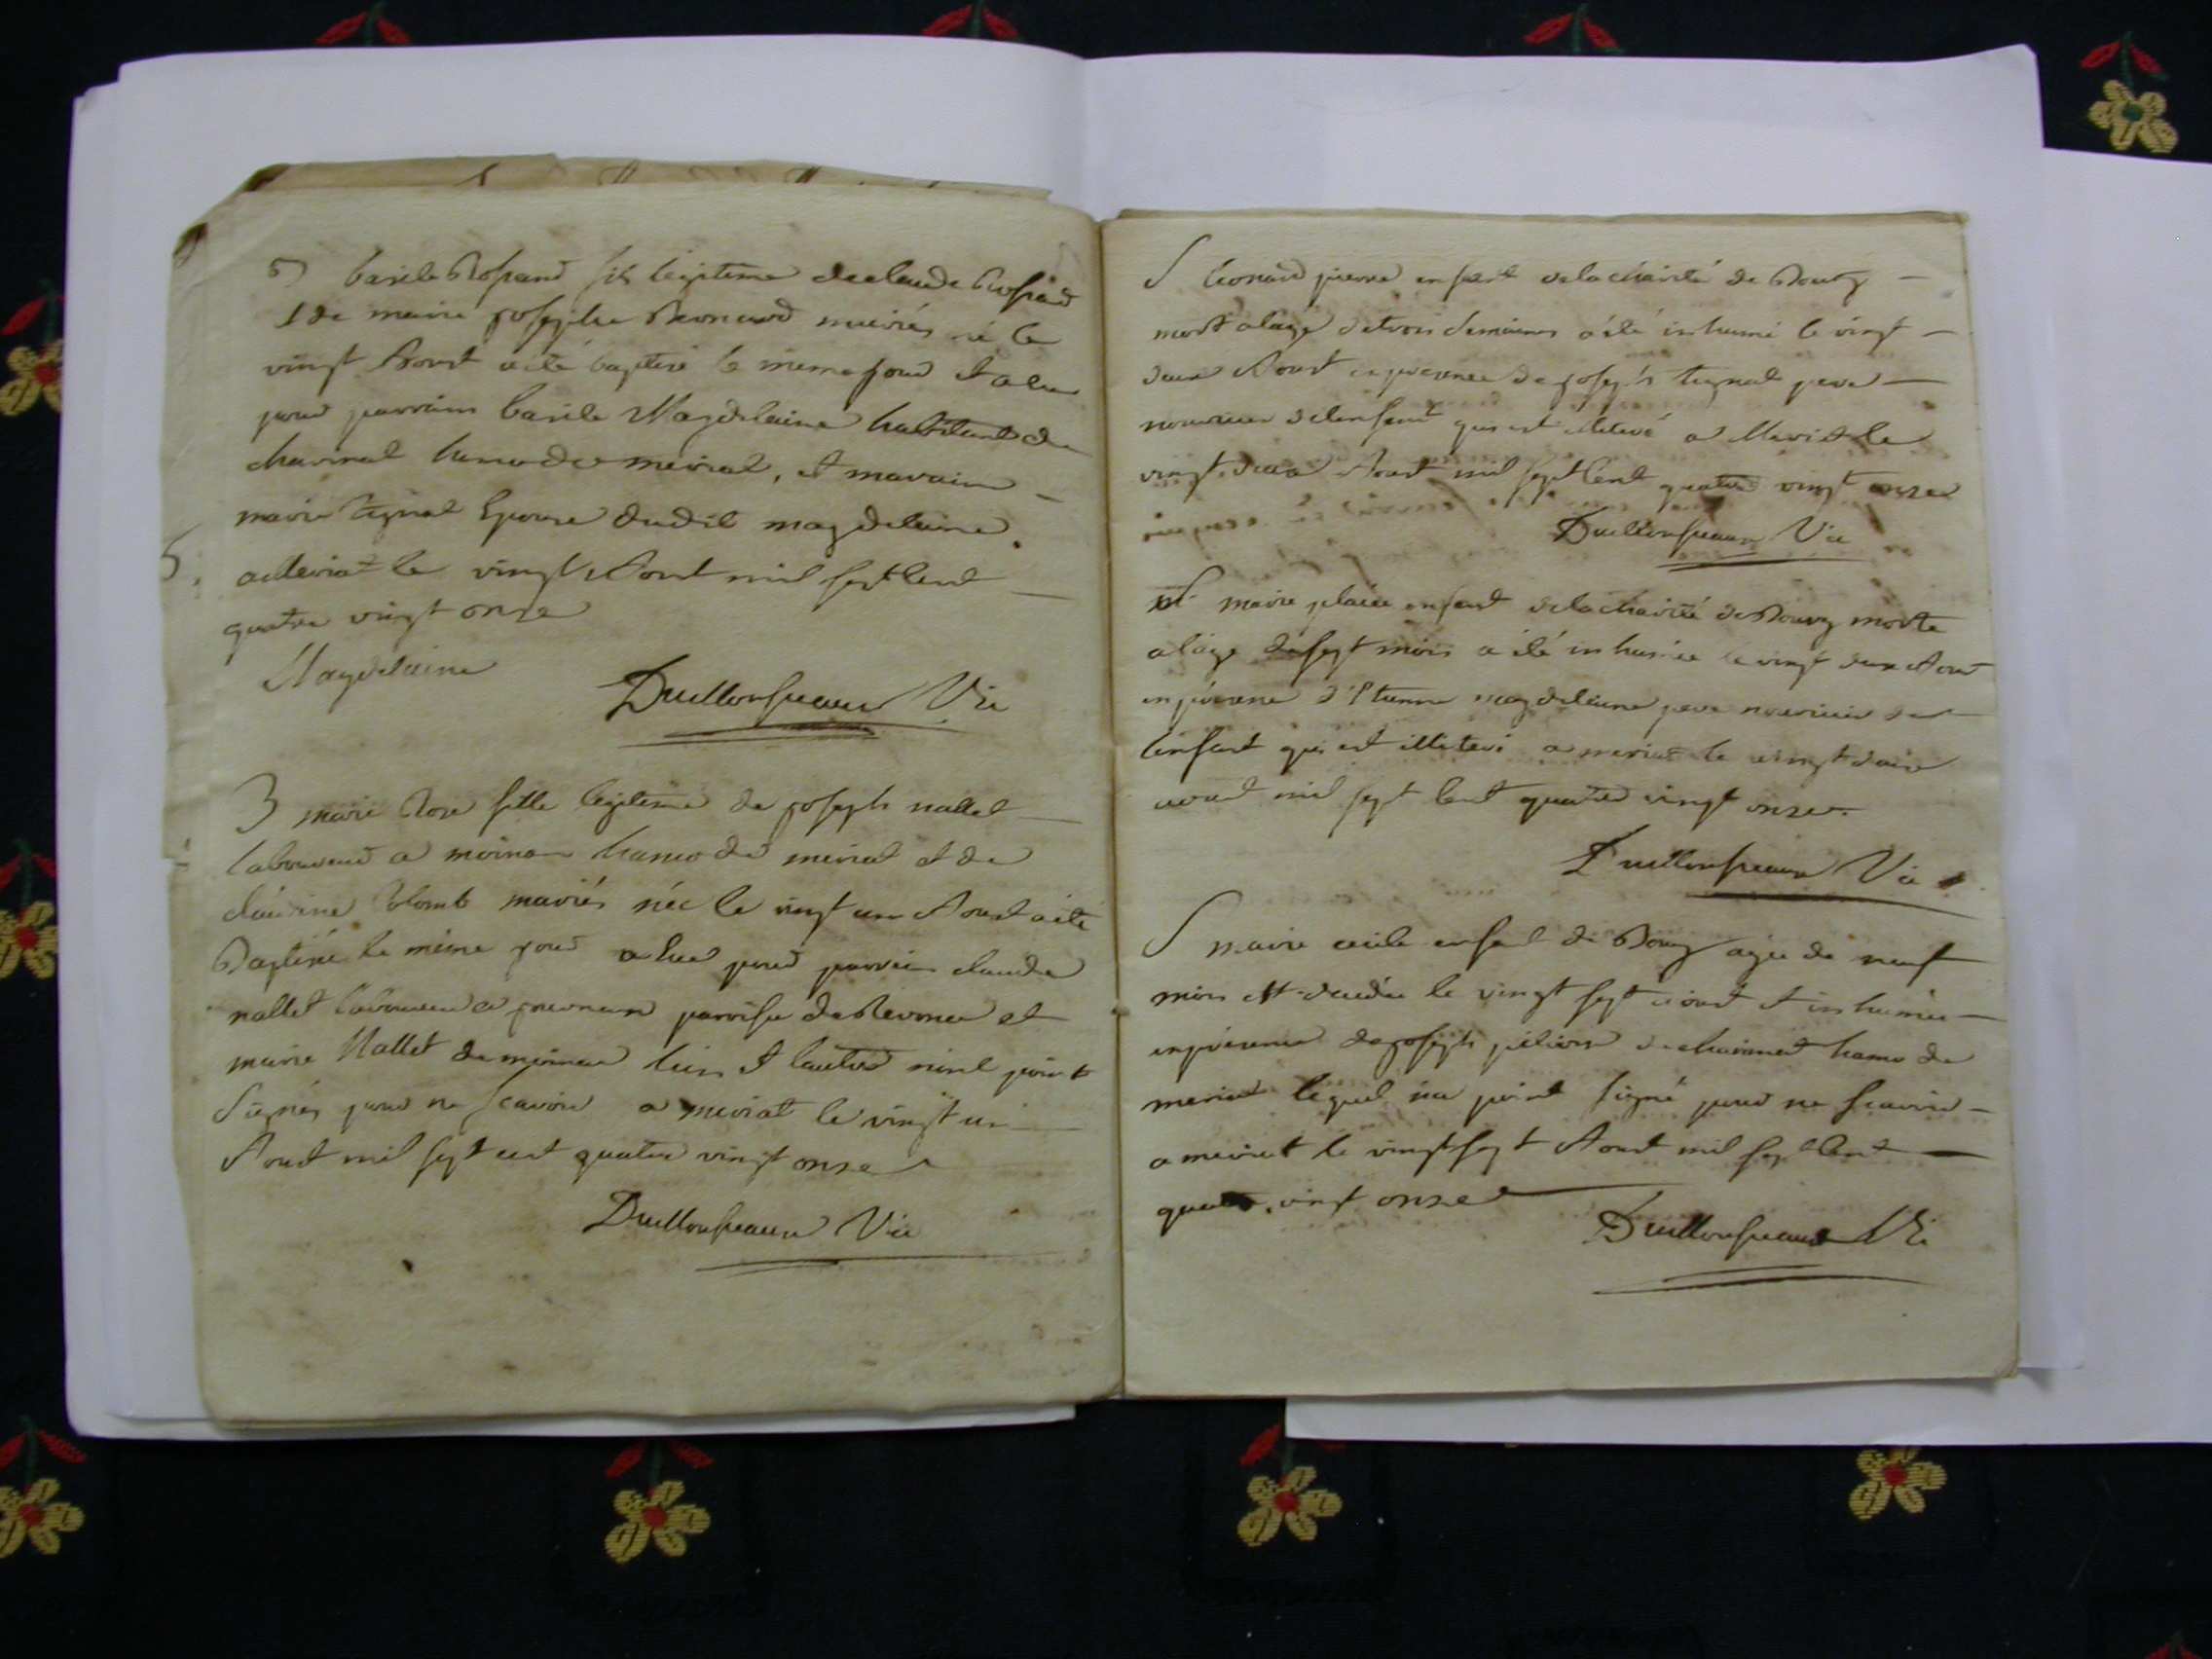 B basile Rossand fils legitime de claude Rossand
& de marie josephte Bernard mariés né le
vingt Aoust a été baptisé le meme jour & a eu
pour parrain basile Magdelaine habitant de
charinal hamo de meriat, et maraine
marie tignat Epouse dudit magdelaine
a Meriat le vingt Aout mil sept Cent
quatre vingt onze
Magdelaine
Vic
B marie Rose fille legitime de joseph nallet
laboureur a hamo de meriat et de
claudine Colomb mariés née le vingt un Aout a été
Baptisée le même jour a eu pour parrain claude
nallet laboureur a paroisse de et
marie Nallet de lun & lautre nont point
Signés pour ne scavoir a meriat le vingt un
Aout mil sept cent quatre vingt onze
Vic
S leonard pierre enfant de la charité de Bourg
mort a lage de trois semaines a été inhumé le vingt
deux Aout en presence de joseph tignat pere
nouricier de lenfant qui est illiteré a Meriat le
vingt deux Aout mil sept Cent quatre vingt onze
Vic
S marie enfant de la charité de Bourg morte
a lage de sept mois a été inhumée le vingt deux Aout
en presence d'Etienne magdelaine pere nouricier de
lenfant qui est illiteré a meriat le vingt deux
aout mil sept Cent quatre vingt onze
Vic
S marie cecile enfant de Bourg agée de neuf
mois est decedée le vingt sept aout & inhumée
en presence de joseph de charinal hamo de
meriat lequel na point signé pour ne scavoir
a meriat le vingt sept Aout mil sept Cent
quatre vingt onze
Vic